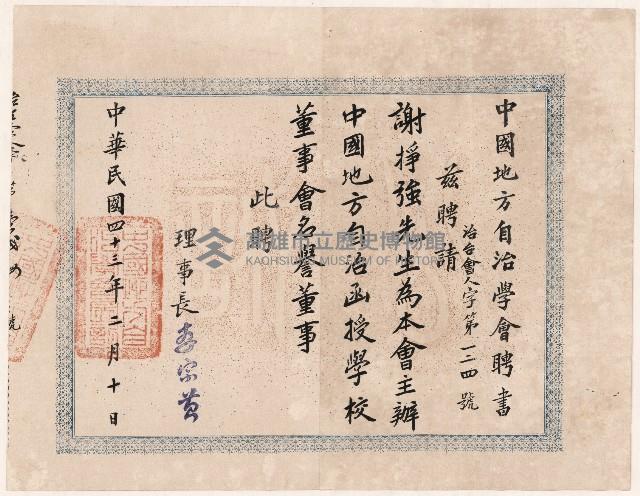 中國地方自治學會聘書
治台會人字第一二四號
茲聘請
謝掙強先生為本會主辦
中國地方自治函授學校
董事會名譽董事
此聘
理事長 李宗黃
中華民國四十三年二月十日
高雄市立歷史博物館
KAOHSIUNG MUSEUM OF HISTORY